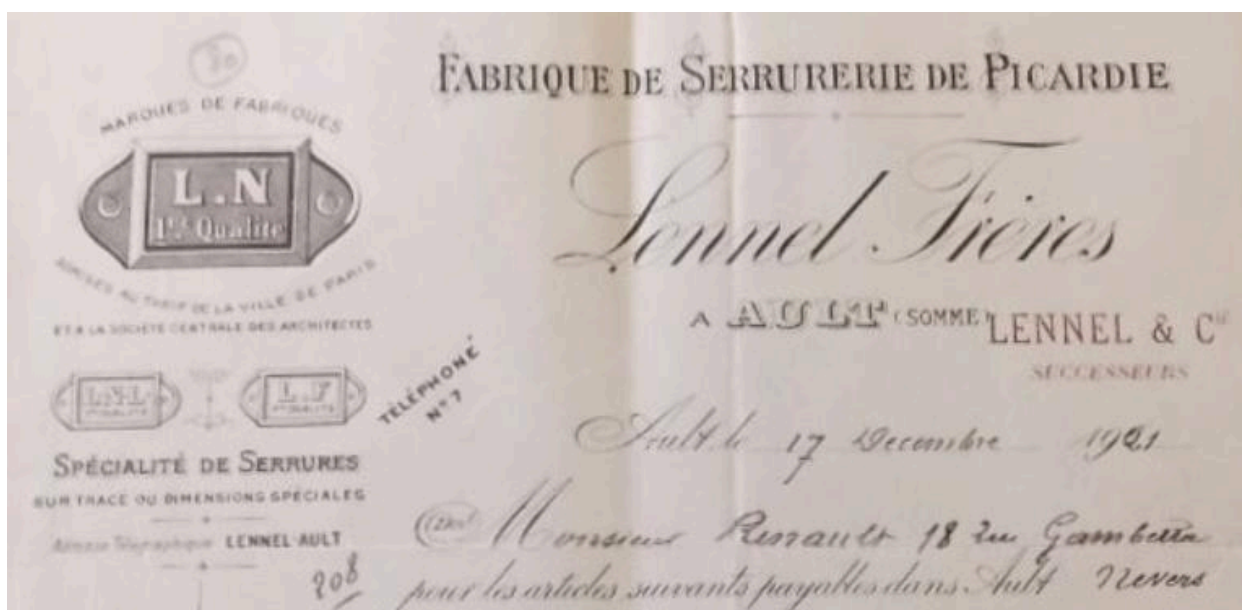 30
MARQUES DE FABRIQUES
L.N
1re Qualité
ADMISES AU TARIF DE LA VILLE DE PARIS
ET A LA SOCIÉTÉ CENTRALE DES ARCHITECTES
1re QUALITÉ
L.F
1re QUALITÉ
SPÉCIALITÉ DE SERRURES
SUR TRACÉ OU DIMENSIONS SPÉCIALES
Adresse Télégraphique LENNEL-AULT
208
TÉLÉPHONE
No 7
FABRIQUE DE SERRURERIE DE PICARDIE
Lennel Frères
A AULT (SOMME) LENNEL & Cie
SUCCESSEURS
Ault, le 17 Decembre 1921
Doit Monsieur Renault 18 rue Gambetta
pour les articles suivants payables dans Ault Nevers